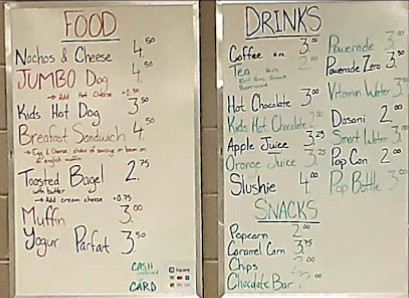 FOOD
Nachos & Cheese 4.50
JUMBO Dog 4.50
→ Add Hot Cheese +0.50
Kids Hot Dog 3.50
Breafast Sandwich 4.50
→ Egg & Cheese, choice of sausage or bacon on english muffin
Toasted Bagel 2.75
with butter
→ Add cream cheese +0.75
Muffin 3.00
Yogur Parfat 3.50
CASH
CARD
Square
DRINKS
Coffee 3.00
Tea 2.00
Hot Chocolate 3.00
Kids Hot Chocolate 2.00
Apple Juice 3.25
Orange Juice 3.25
Slushie 4.00
Powerade 3.00
Powerade Zero 3.50
Vitamin Water 3.50
Dasani 2.00
Smart Water 3.00
Pop Can 2.00
Pop Bottle 3.00
SNACKS
Popcorn 2.00
Caramel Corn 3.75
Chips 2.00
Chocolate Bar